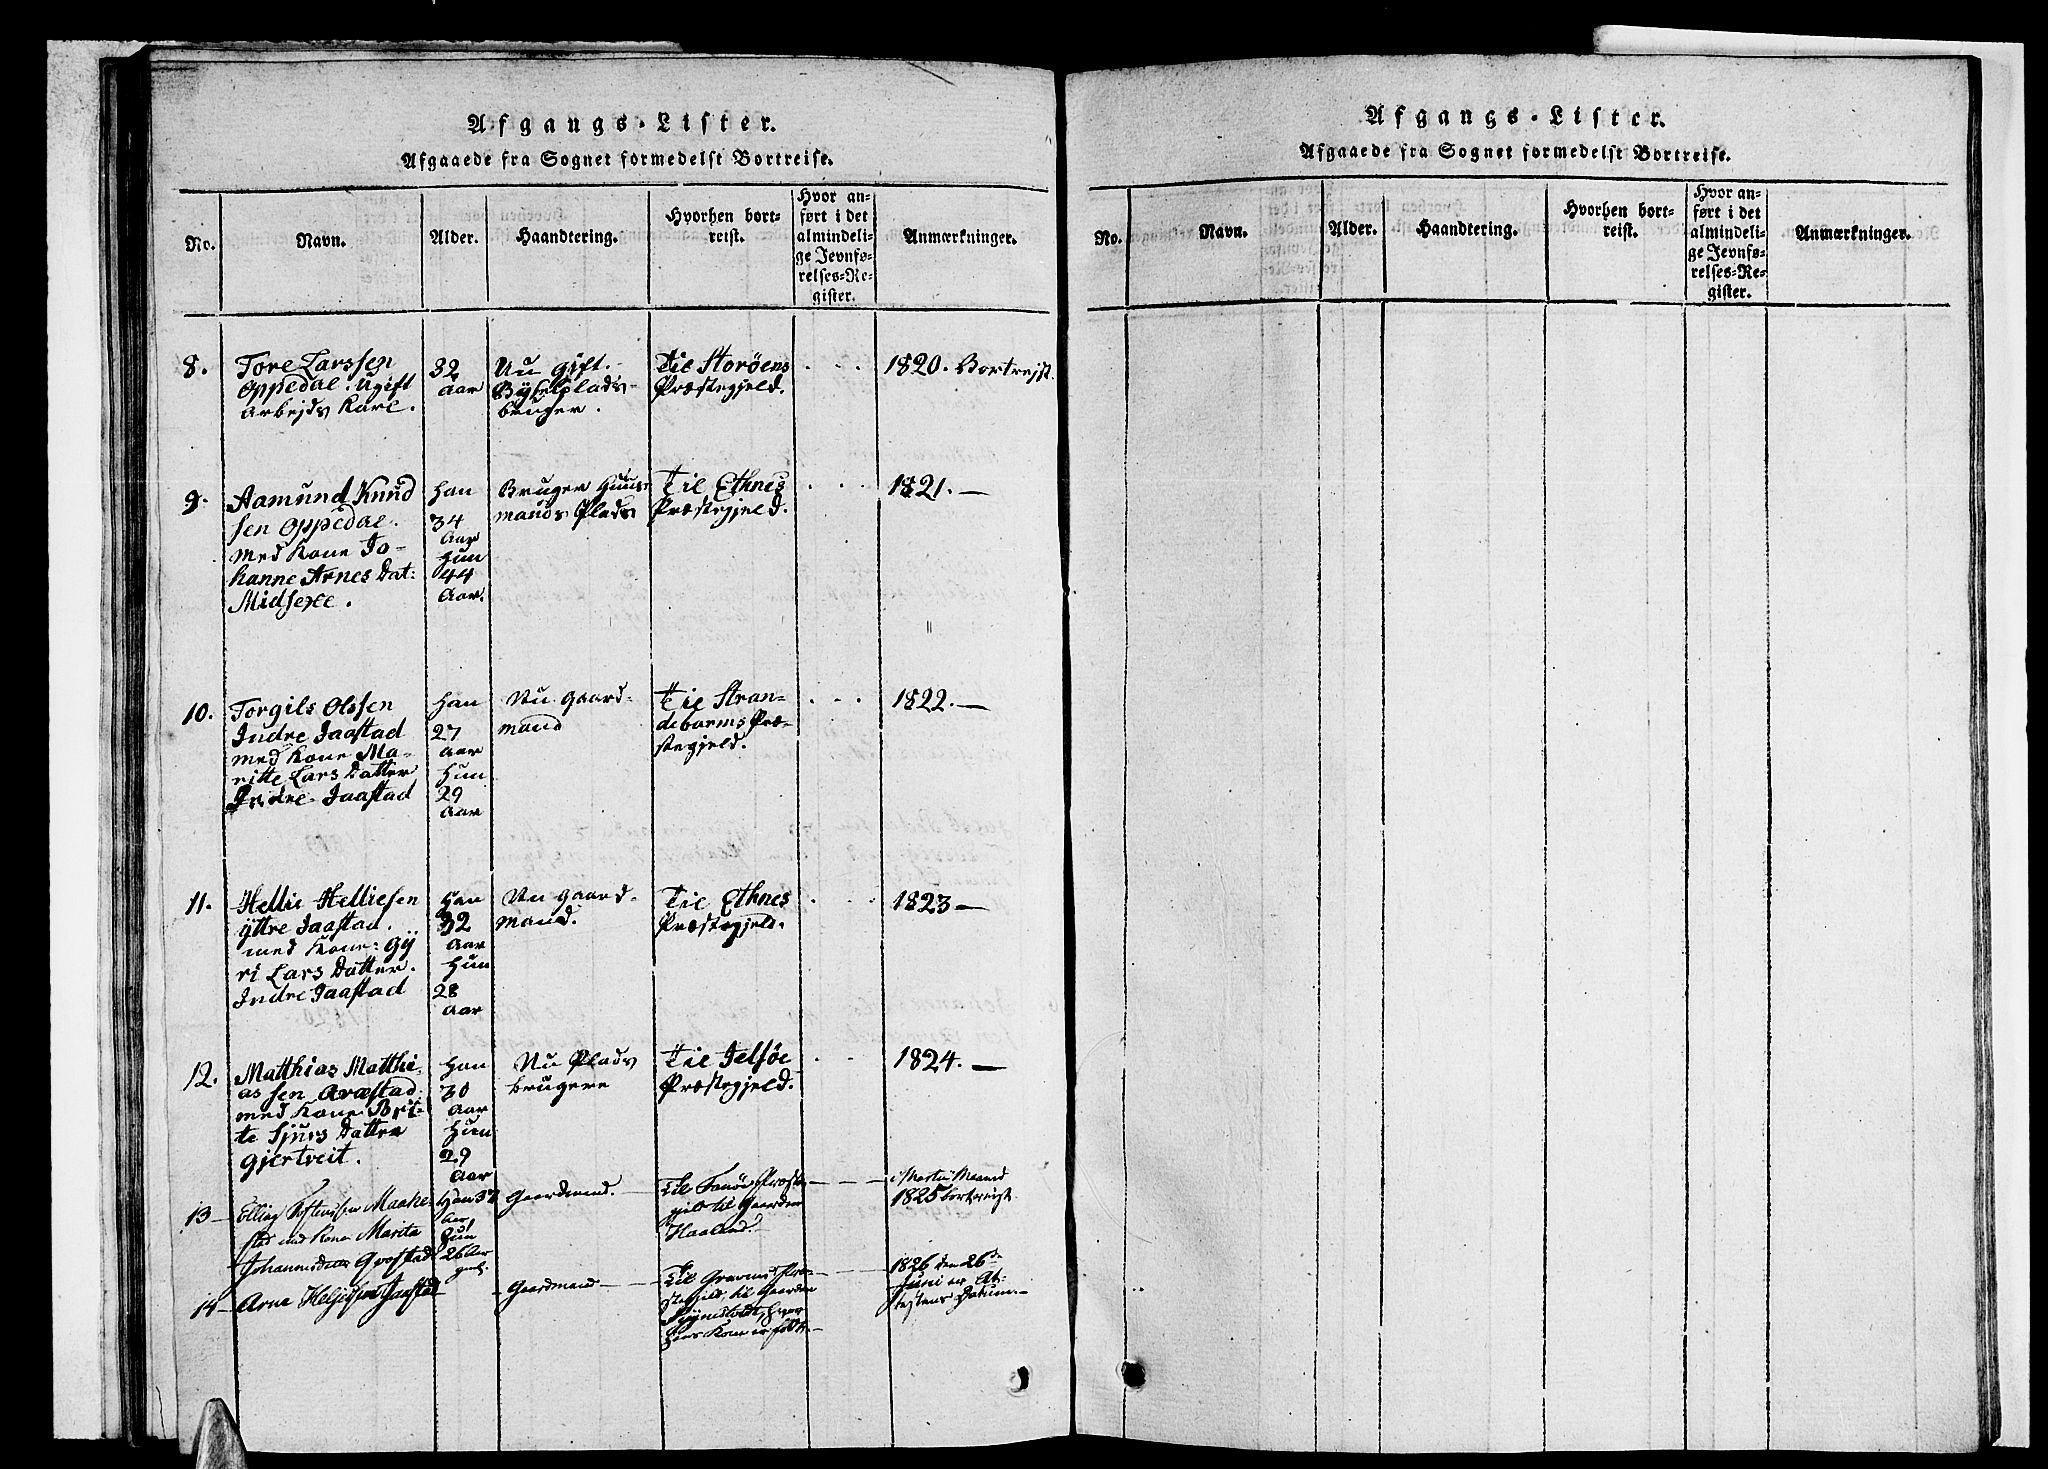 Afgangs-Lister.
Afgaaede fra Sognet formedelst Bortreise.
No.
Navn.
Alder.
Haandtering.
Hvorhen bort-
reist.
Hvor an-
ført i det
almindeli-
ge Jevnfø-
relses-Re-
gister.
Anmærkninger.
8.
Tore Larssen
Oppedal. Ugift
Arbejds Karl.
32
Aar
Nu gift.
Bygselplads-
bruger.
Til Storöens
Præstegjeld.
1820. Bortrejst.
9.
Aamund Knud
sen Oppedal.
med Kone Jo-
hanne Arnes Dat:
Midsexe.
Han
34
Aar
Hun
44
Aar.
Bruger Huus-
mands Plads
Til Ethnes
Præstegjeld.
1821. —
10.
Torgils Olssen
Indre Jaastad
med Kone Ma-
ritte Lars Datter
Indre Jaastad
Han
27
Aar
Hun
29
Aar
Nu Gaard-
mand
Til Stran-
debarms Præ-
stegjeld.
1822. —
11.
Hellie Helliesen
Yttre Jaastad.
med Kone Gy
ri Lars Datter.
Indre Jaastad
Han
32
Aar
Hun
28
Aar
Nu Gaard-
mand.
Til Ethnes
Præstegjeld.
1823 —
12.
Matthias Matthi-
as sen Aræstad
med Kone Brit-
te Sjurs Datter
Gjertveit.
Han
30
Aar
Hun
29
Aar
Nu Plads
brugere
Til Jelsöe
Præstegjeld.
1824. —
13 —
Elling Maake-
stad med Kone Marita
Han 37
Aar,
Hun
26 Aar
Gaardmand. —
Til Præste-
gield til Gaarden
Haaland. —
i Martii Maaned
1825 bortreist
14 —
Arne Heljesen Jaastad
Gaardmand —
Til Gravens Præ-
stegield, til Gaarden
hvor
hans Kone er født. —
1826 den 26de
Juni er At-
testens Datum. —
Afgangs-Lister.
Afgaaede fra Sognet formedelst Bortreise.
No.
Navn.
Alder.
Haandtering.
Hvorhen bort-
reist.
Hvor an-
ført i det
almindeli-
ge Jevnfø-
relses-Re-
gister.
Anmærkninger.